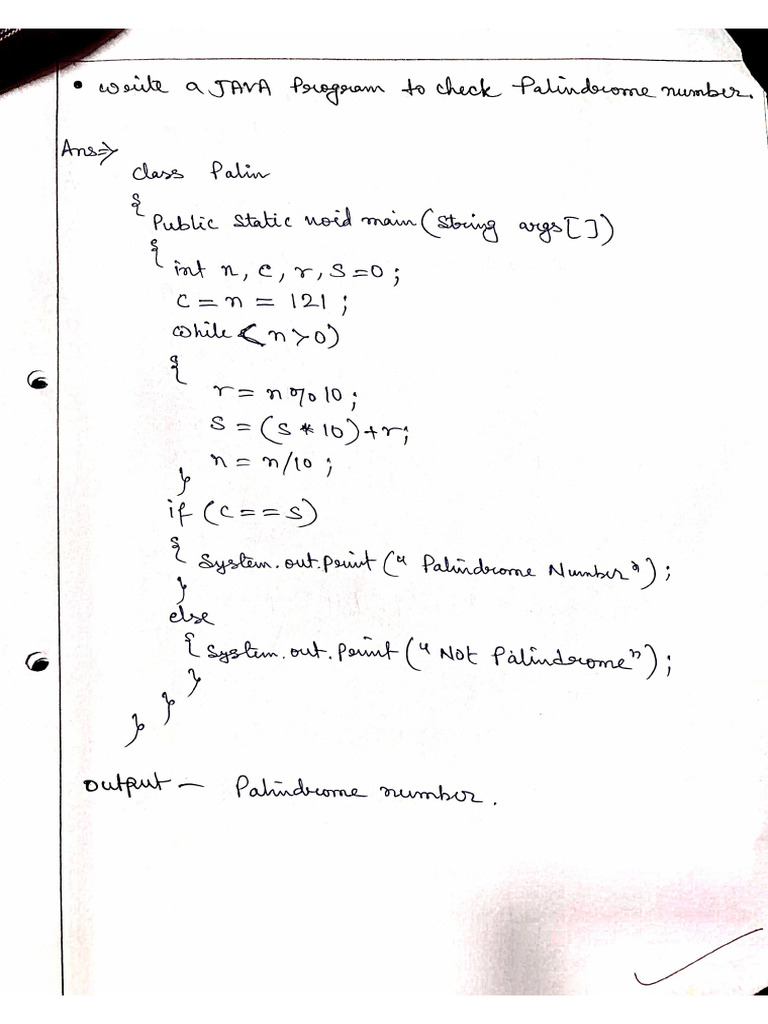 • Write a JAVA Program to check Palindrome number.
Ans⇒
class Palin
{
Public static void main(String args[])
{
int n, c, r, s=0;
c = n = 121;
while(n>0)
{
r = n%10;
s = (s*10)+r;
n = n/10;
}
if (c==s)
{ System.out.print("Palindrome Number");
}
else
{ System.out.print("Not Palindrome");
}
} }
output — Palindrome number.